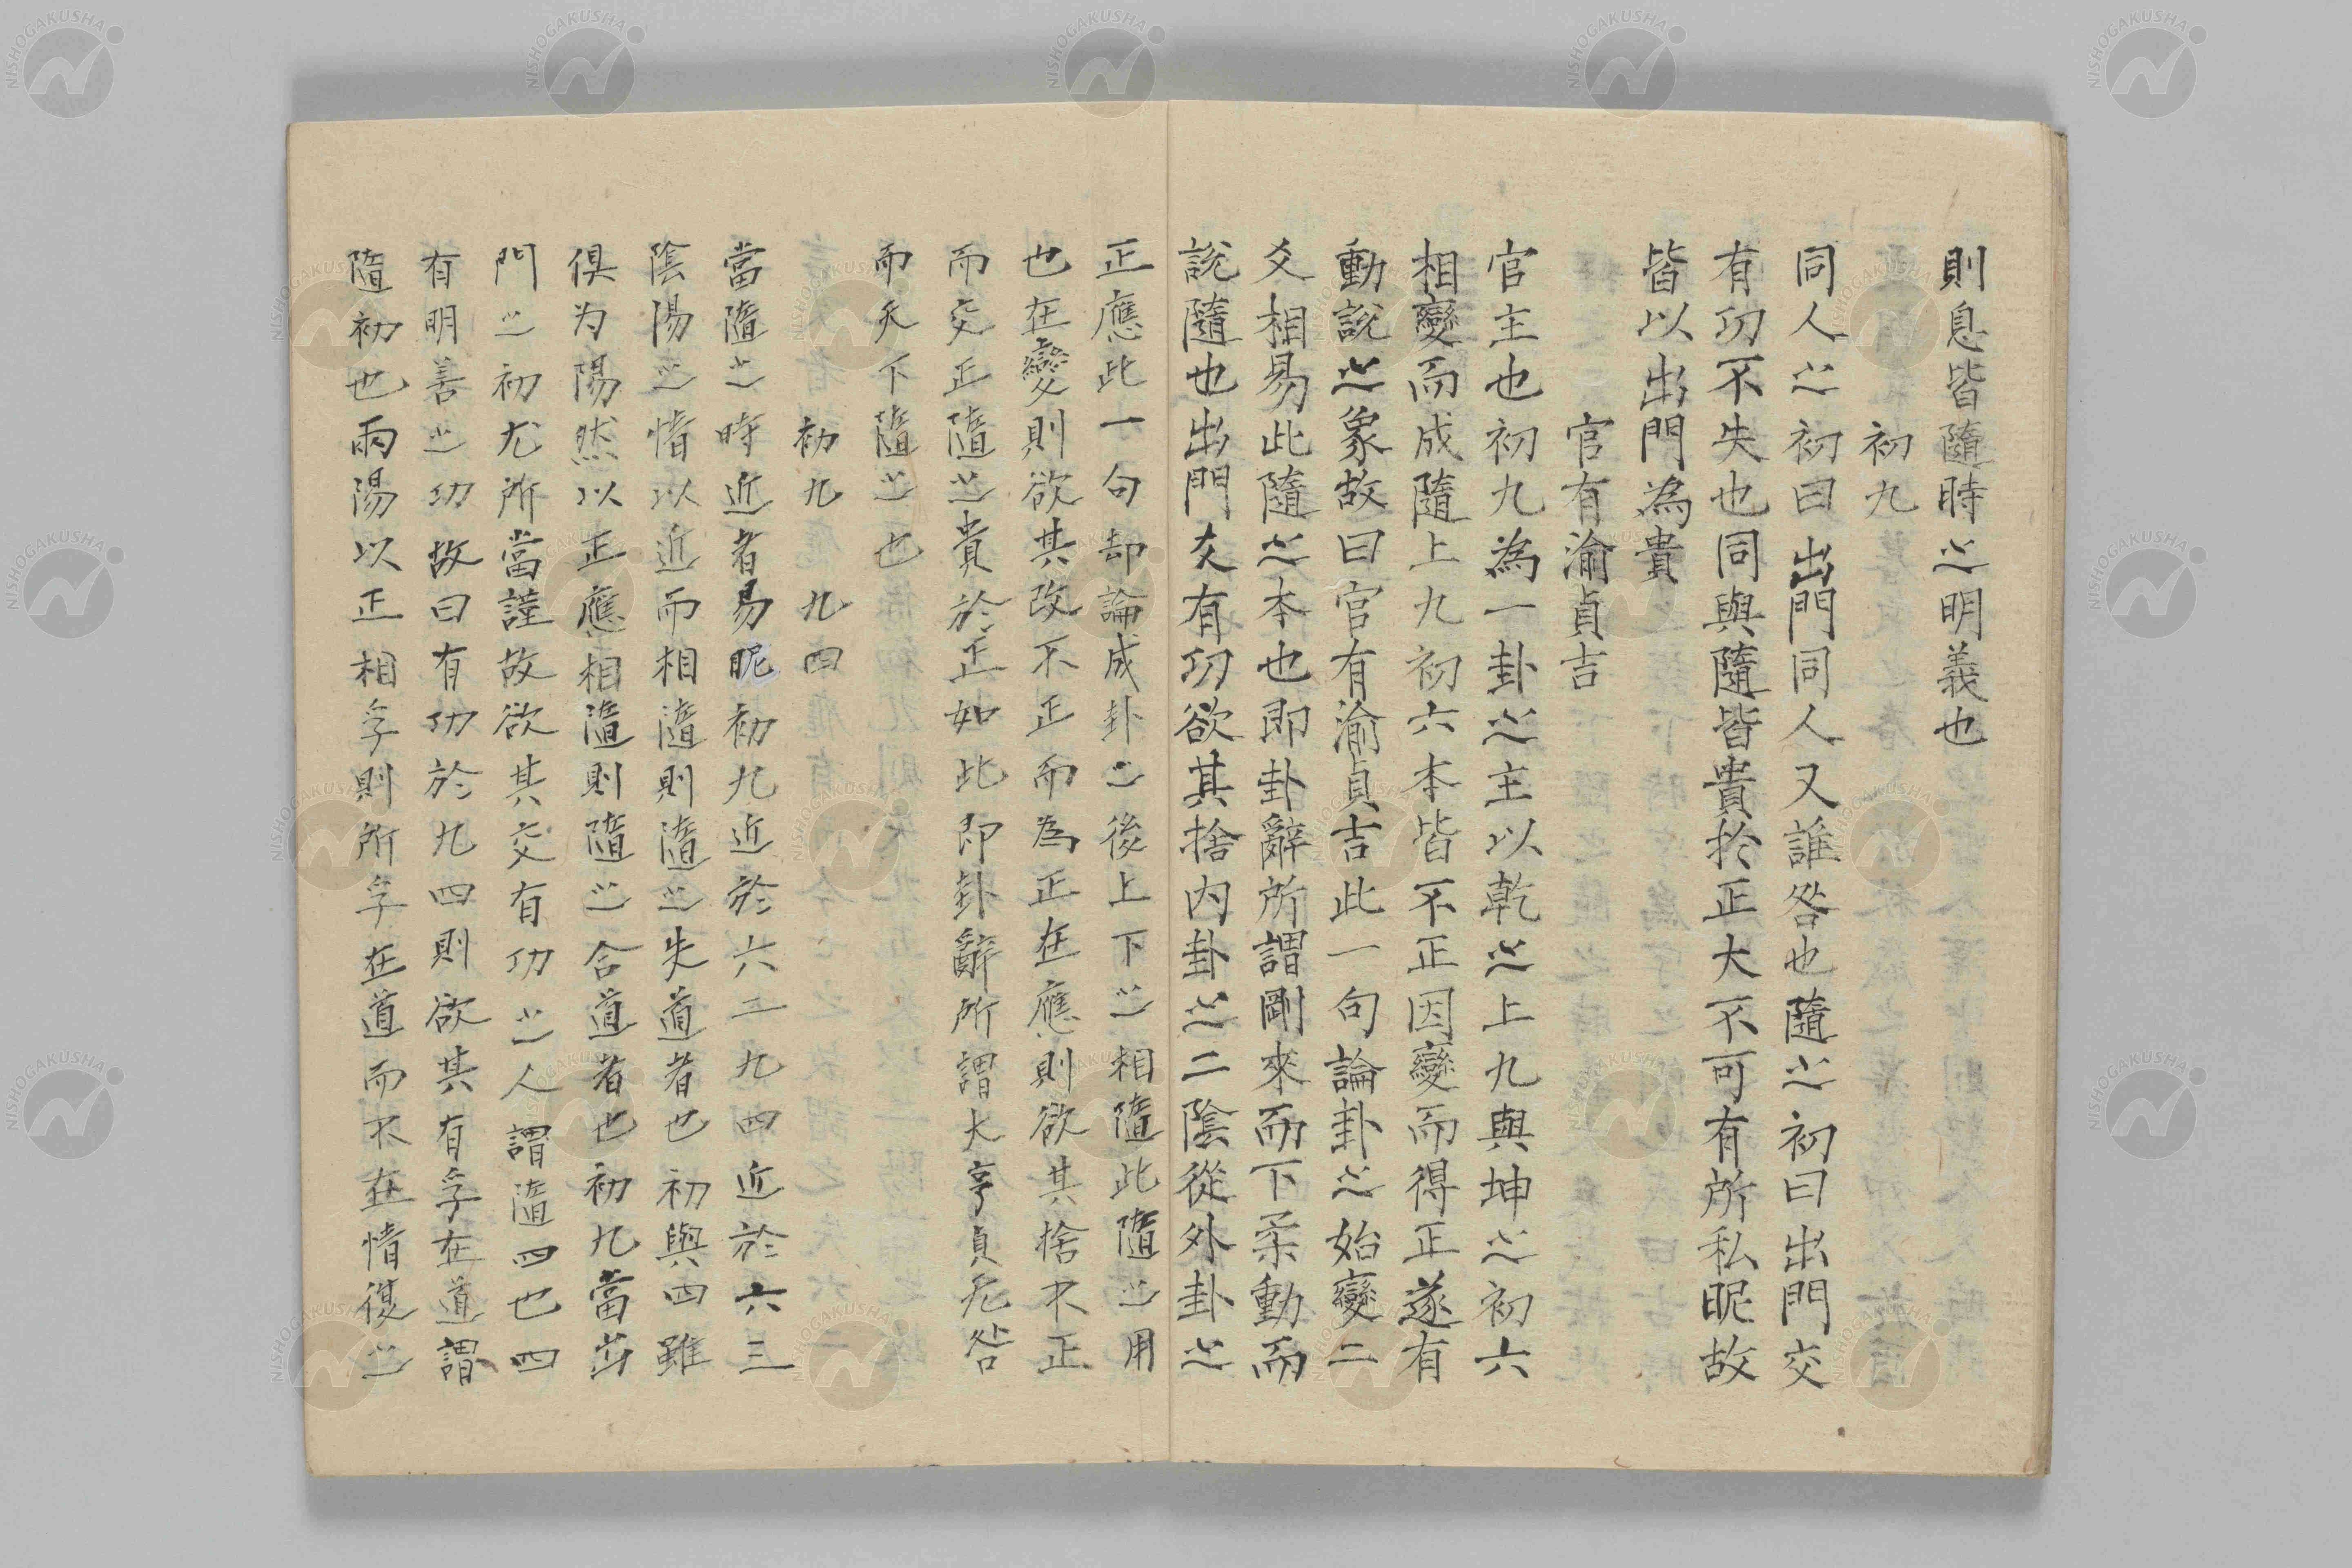 則息皆隨時之明義也
初九
同人之初曰出門同人又誰咎也隨之初曰出門交
有功不失也同與隨皆貴於正大不可有所私昵故
皆以出門為貴
官有渝貞吉
官主也初九為一卦之主以乾之上九與坤之初六
相變而成隨上九初六本皆不正因變而得正遂有
動說之象故曰官有渝貞吉此一句論卦之始變二
爻相易此隨之本也即卦辭所謂剛來而下柔動而
說隨也出門交有功欲其捨內卦之二陰從外卦之
正應此一句却論成卦之後上下之相隨此隨之用
也在變則欲其改不正而為正在應則欲其捨不正
而交正隨之貴於正如此即卦辭所謂大亨貞无咎
而天下隨之也
初九 九四
當隨之時近者易昵初九近於六二九四近於六三
陰陽之情以近而相隨則隨之失道者也初與四雖
俱为陽然以正應相隨則隨之合道者也初九當出
門之初尤所當謹故欲其交有功之人謂隨四也四
有明善之功故曰有功於九四則欲其有孚在道謂
隨初也兩陽以正相孚則所孚在道而不在情復之
NISHOGAKUSHA